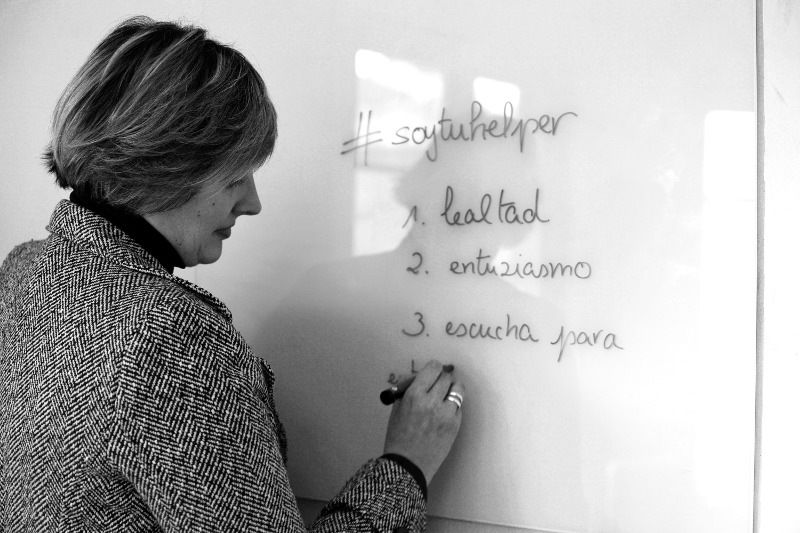 #soytuhelper
1. lealtad
2. entuziasmo
3. escucha para